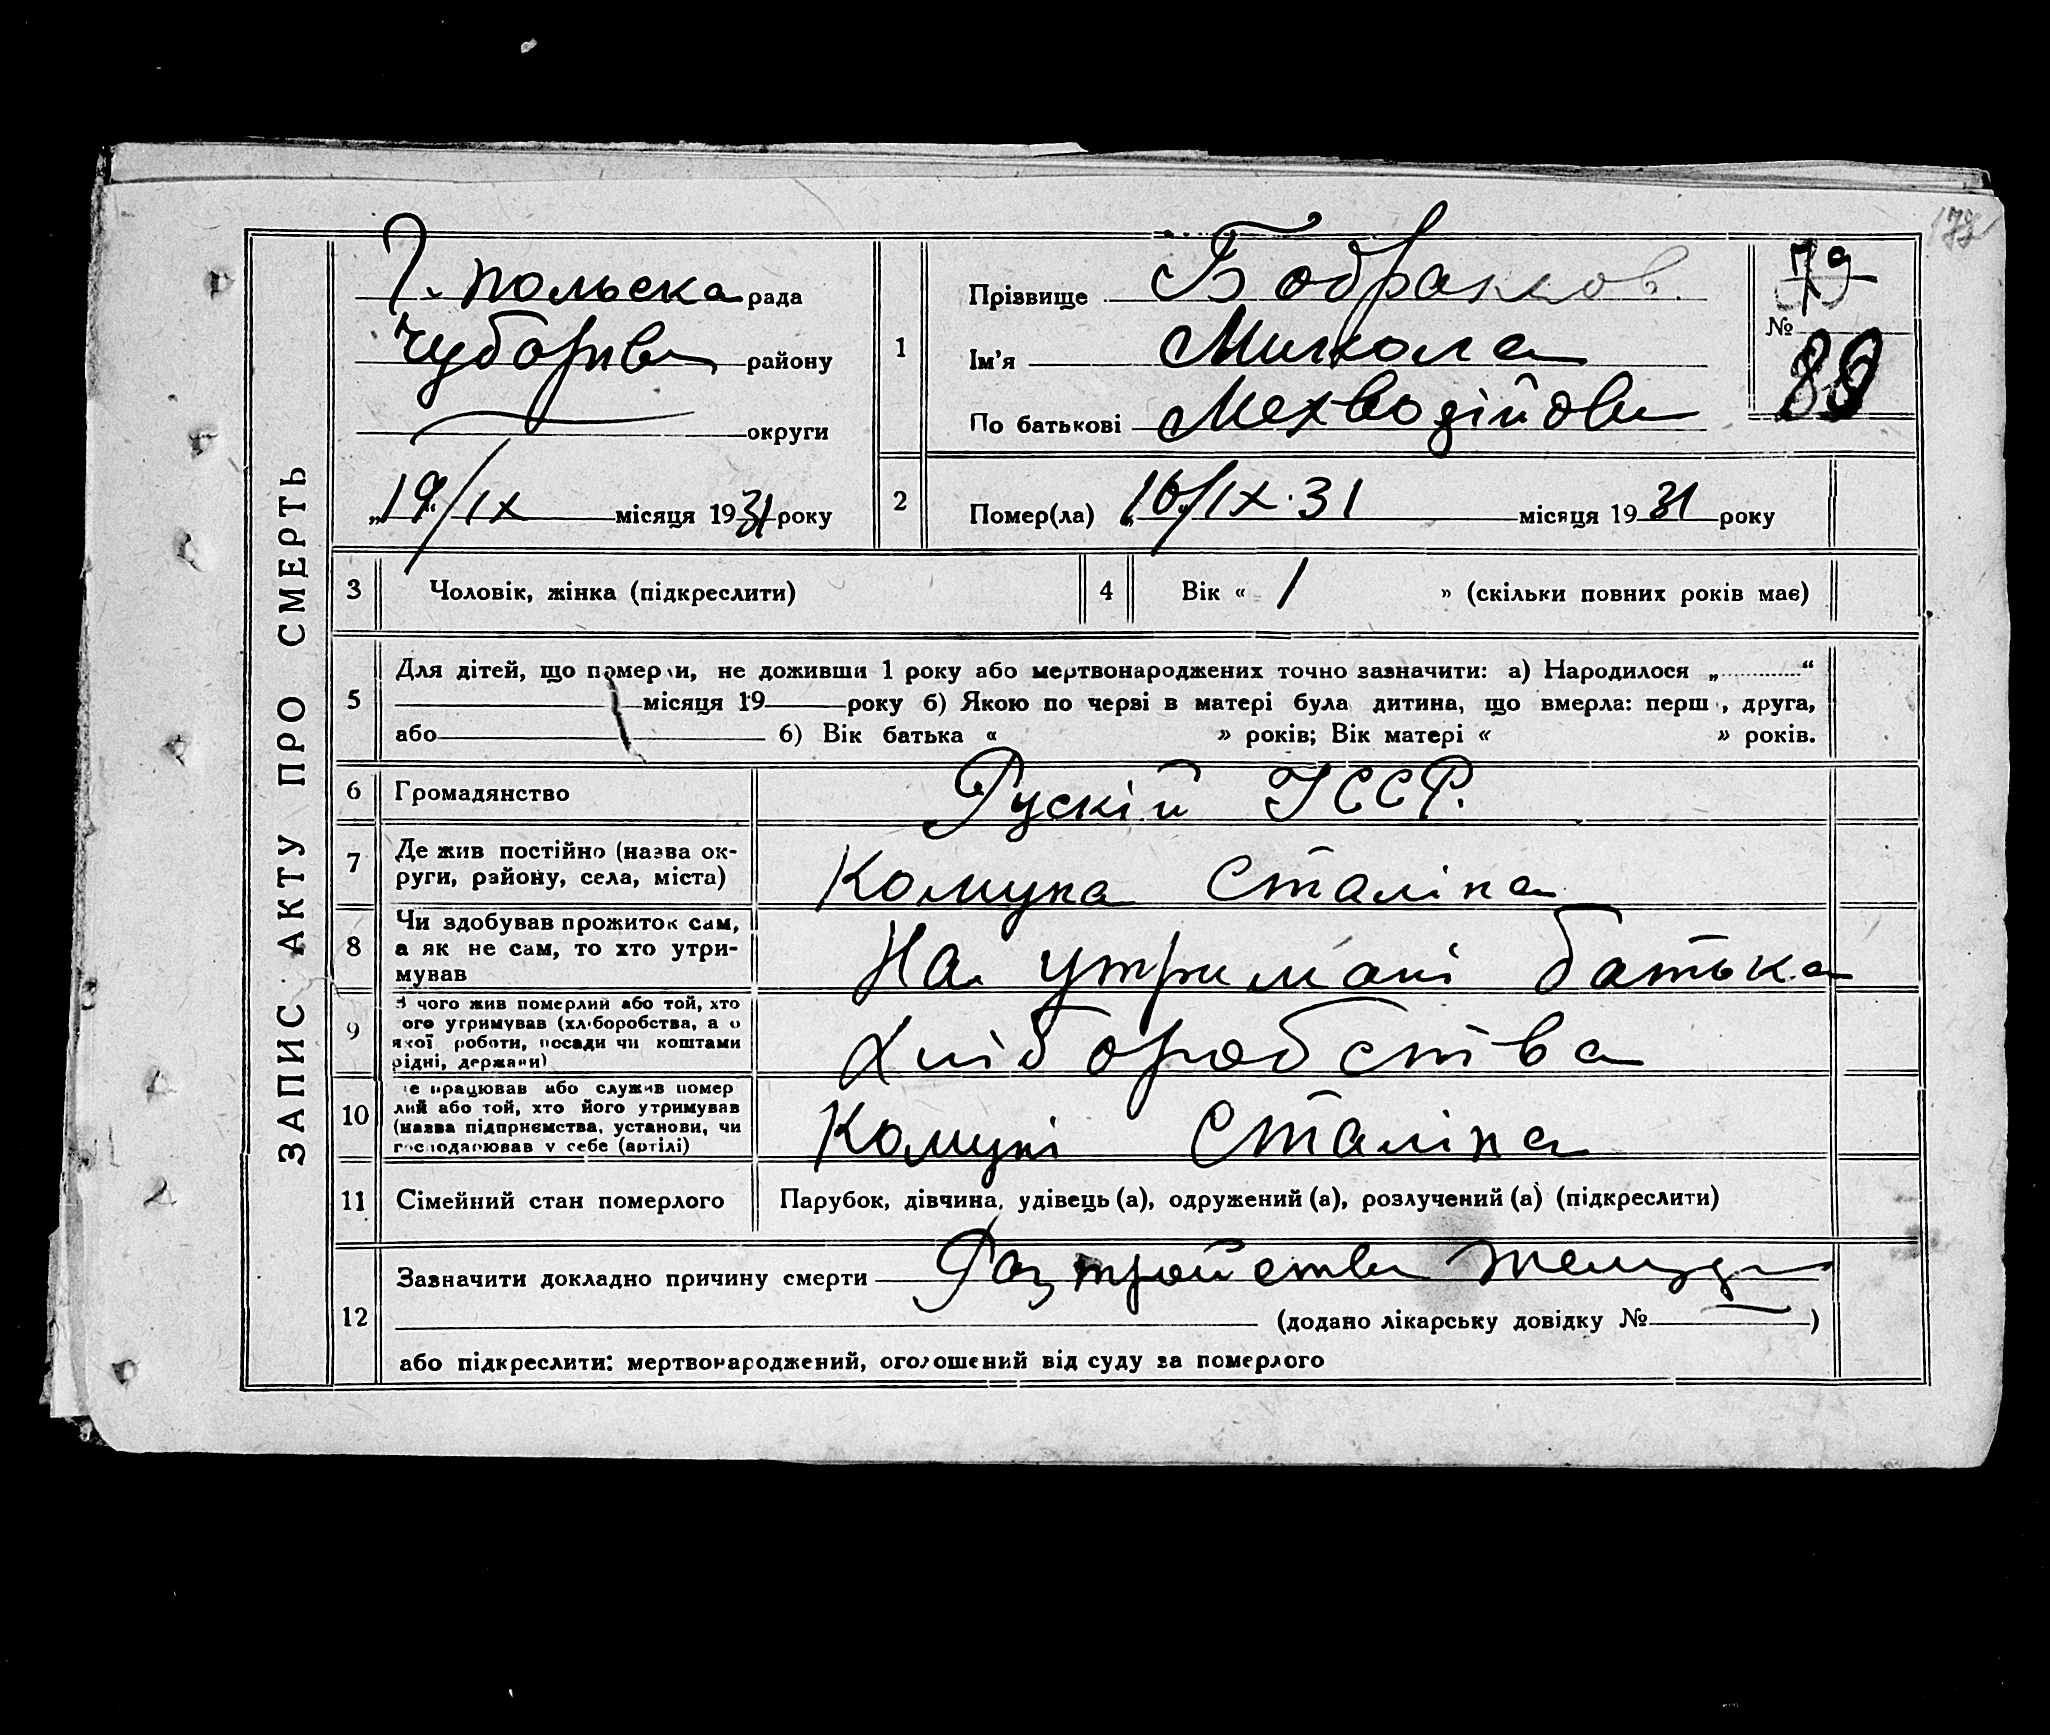 ЗАПИС АКТУ ПРО СМЕРТЬ
Г. польська рада
району
округи
„19“ IX місяця 1931 року
1
Прізвище Бобранков.
Ім'я Микола
По батькові
79
№
88
2
Помер(ла) „16“ IX. 31 місяця 1931 року
3
Чоловік, жінка (підкреслити)
4
Вік « 1 » (скільки повних років має)
5
Для дітей, що померли, не доживши 1 року або мертвонароджених точно зазначити: а) Народилося „ “
місяця 19 року б) Якою по черзі в матері була дитина, що вмерла: перша, друга,
або б) Вік батька « » років; Вік матері « » років.
6
Громадянство
Рускій УССР.
7
Де жив постійно (назва ок-
руги, району, села, міста)
Комуна Сталіна
8
Чи здобував прожиток сам,
а як не сам, то хто утри-
мував
На утримані батька
9
З чого жив померлий або той, хто
ого утримував (хліборобства, а о
якої роботи, посади чи коштами
рідні, держави)
Хліборобства
10
е працював або служив помер
лий або той, хто його утримував
(назва підприємства, установи, чи
господарював у себе (артілі)
Комуні Сталіна
11
Сімейний стан померлого
Парубок, дівчина, удівець (а), одружений (а), розлучений (а) (підкреслити)
12
Зазначити докладно причину смерти Разтройства желуд
(додано лікарську довідку № )
або підкреслити: мертвонароджений, оголошений від суду за померлого